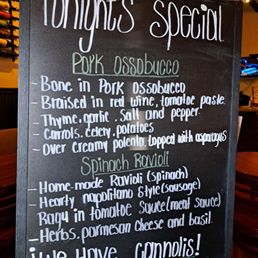 Tonight's Special
Pork Ossobucco
- Bone in Pork Ossobucco
- Braised in red wine, tomatoe paste
- Thyme, garlic, Salt and pepper.
- Carrots, celery, potatoes
- Over creamy polenta, topped with asparagus
Spinach Ravioli
- Home-made Ravioli (spinach)
- Hearly napolitano Style (sausage)
Ragu in tomatoe Sauce (meat Sauce)
- Herbs, parmesan cheese and basil.
¡We Have Connolis!